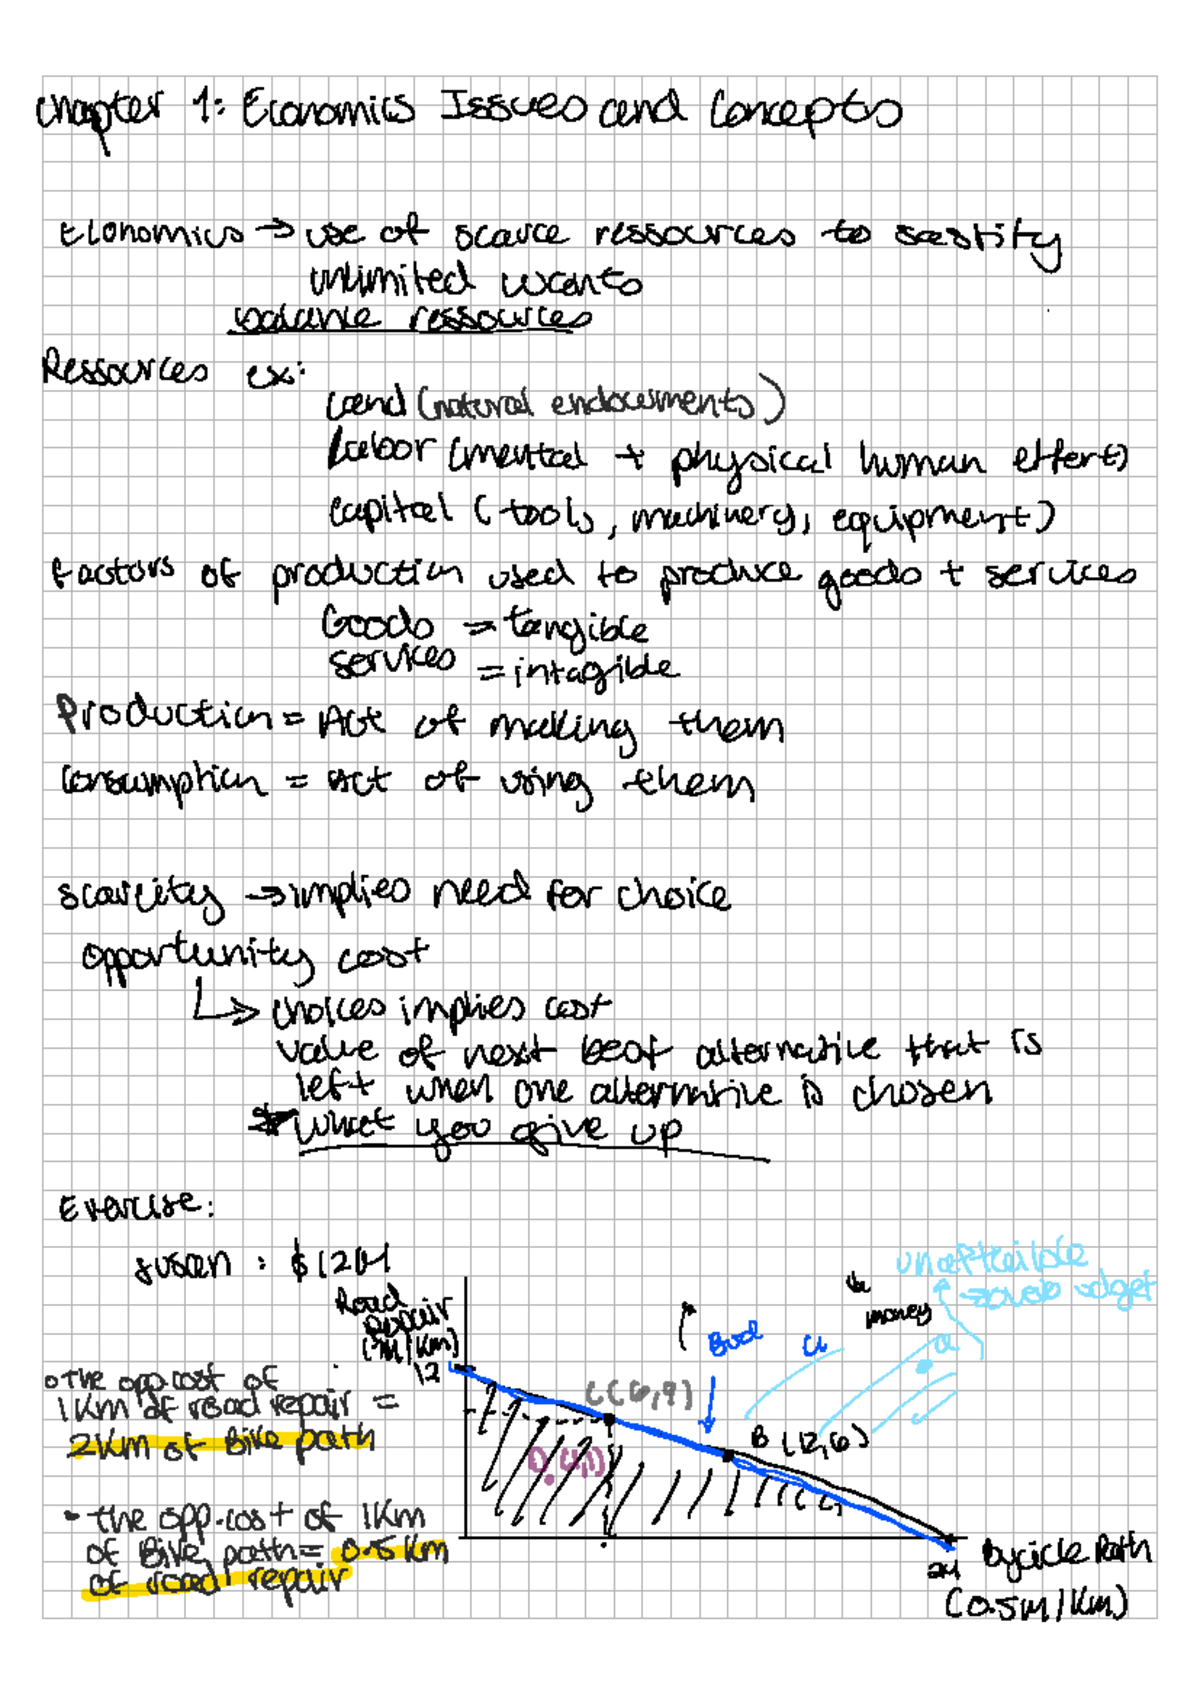 Chapter 1: Economics Issues and Concepts
Economics → use of scarce ressources to sastify
unlimited wants
ressources
Ressources ex:
Land (natural endowments)
Labor (mental + physical human effort)
Capital (tools, machinery, equipment)
factors of production used to produce goods + services
Goods = tangible
services = intagible
Production = Act of making them
Consumption = Act of using them
scarcity → implies need for choice
opportunity cost
↳ choices implies cost
value of next best alternative that is
left when one alternative is chosen
* what you give up
Exercise:
susan : $12M
unattainible
→ over budget
Road
Repair
(1M/Km)
money
12
C(6,9)
B (12,6)
D (4,1)
• the opp.cost of
1Km of road repair =
2Km of Bike path
• the opp.cost of 1Km
of Bike path = 0.5 Km
of road repair
24
Bycicle Path
(0.5M/Km)